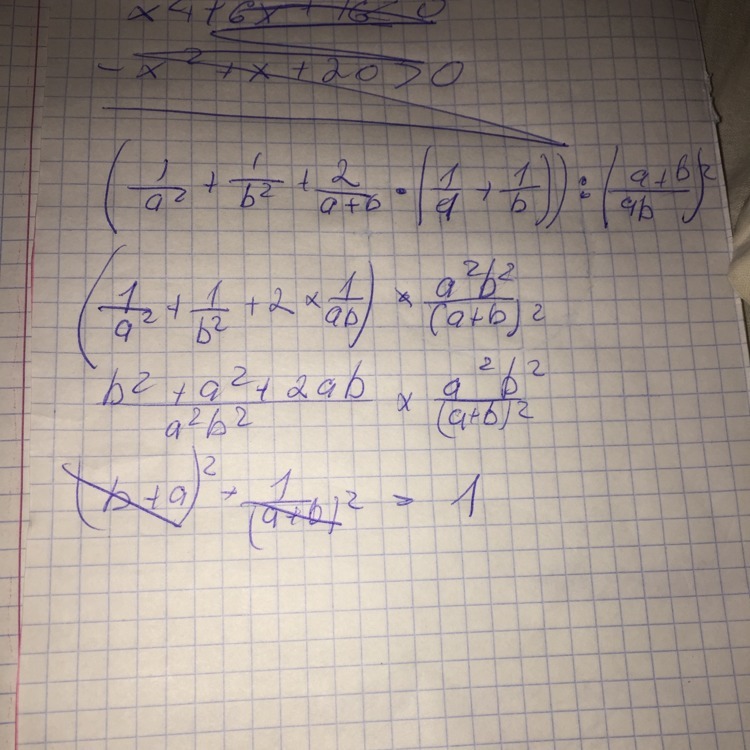 x^4 + 6x + 16 < 0
-x^2 + x + 20 > 0
(1/a^2 + 1/b^2 + 2/(a+b) · (1/a + 1/b)) : ((a+b)/ab)^2
(1/a^2 + 1/b^2 + 2 × 1/ab) × a^2b^2/(a+b)^2
(b^2 + a^2 + 2ab)/a^2b^2 × a^2b^2/(a+b)^2
(b+a)^2 · 1/(a+b)^2 = 1